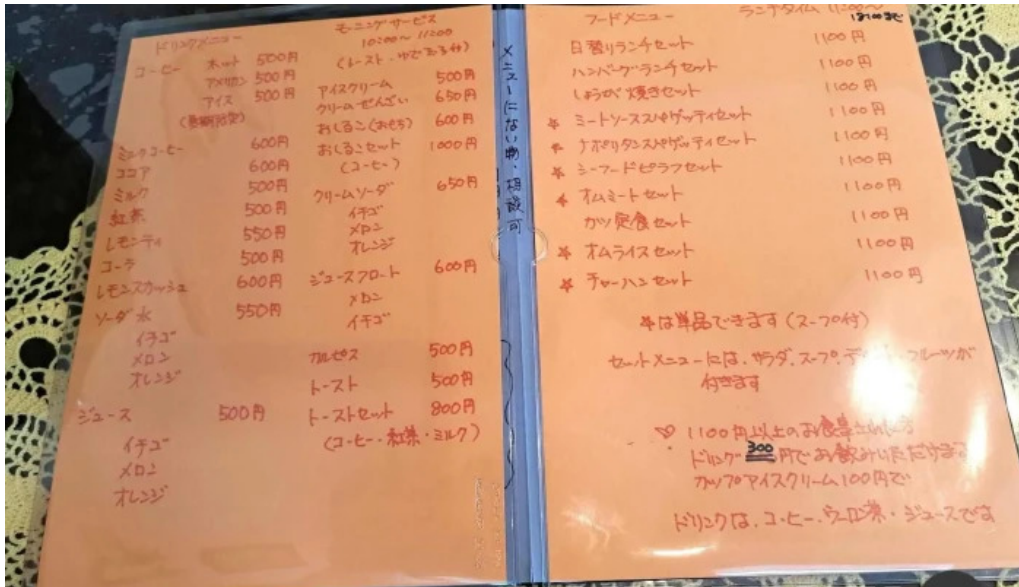 ドリンクメニュー
コーヒー ホット 500円
アメリカン 500円
アイス 500円
(長期限定)
ミルクコーヒー 600円
ココア 600円
ミルク 500円
紅茶 500円
レモンティ 550円
コーラ 500円
レモンスカッシュ 600円
ソーダ水 550円
イチゴ
メロン
オレンジ
ジュース 500円
イチゴ
メロン
オレンジ
モーニングサービス
10:00〜11:00
(トースト・ゆでたまご付)
アイスクリーム 500円
クリームぜんざい 650円
おしるこ(おもち) 600円
おしるこセット 1000円
(コーヒー)
クリームソーダ 650円
イチゴ
メロン
オレンジ
ジュースフロート 600円
メロン
イチゴ
カルピス 500円
トースト 500円
トーストセット 800円
(コーヒー・紅茶・ミルク)
メニューにない物、相談可
フードメニュー
ランチタイム 11:00〜
日替りランチセット 1100円
ハンバーグランチセット 1100円
しょうが焼きセット 1100円
☆ ミートソーススパゲッティセット 1100円
☆ ナポリタンスパゲッティセット 1100円
☆ シーフードピラフセット 1100円
☆ オムミートセット 1100円
カツ定食セット 1100円
☆ オムライスセット 1100円
☆ チャーハンセット 1100円
☆は単品できます(スープ付)
セットメニューには、サラダ、スープ、フルーツが
付きます
♡ 1100円以上のお食事
ドリンク300円でお飲みいただけます
カップアイスクリーム100円で
ドリンクは、コーヒー、ウーロン茶・ジュースです